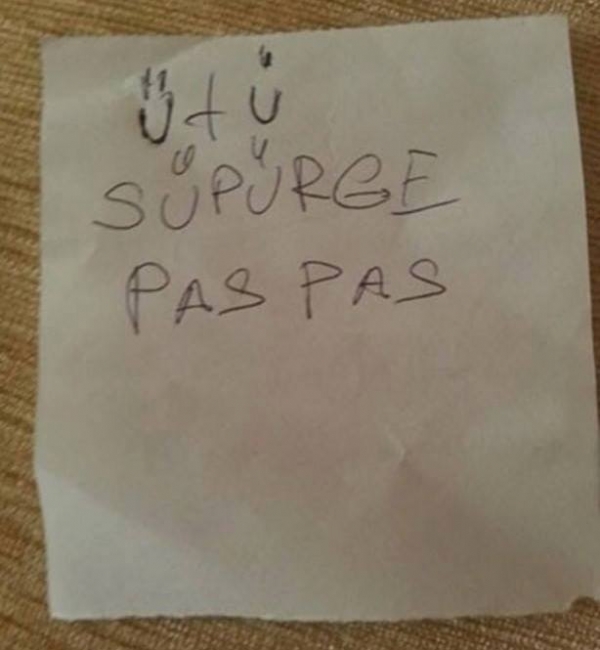 ÜtÜ
SÜPÜRGE
PASPAS